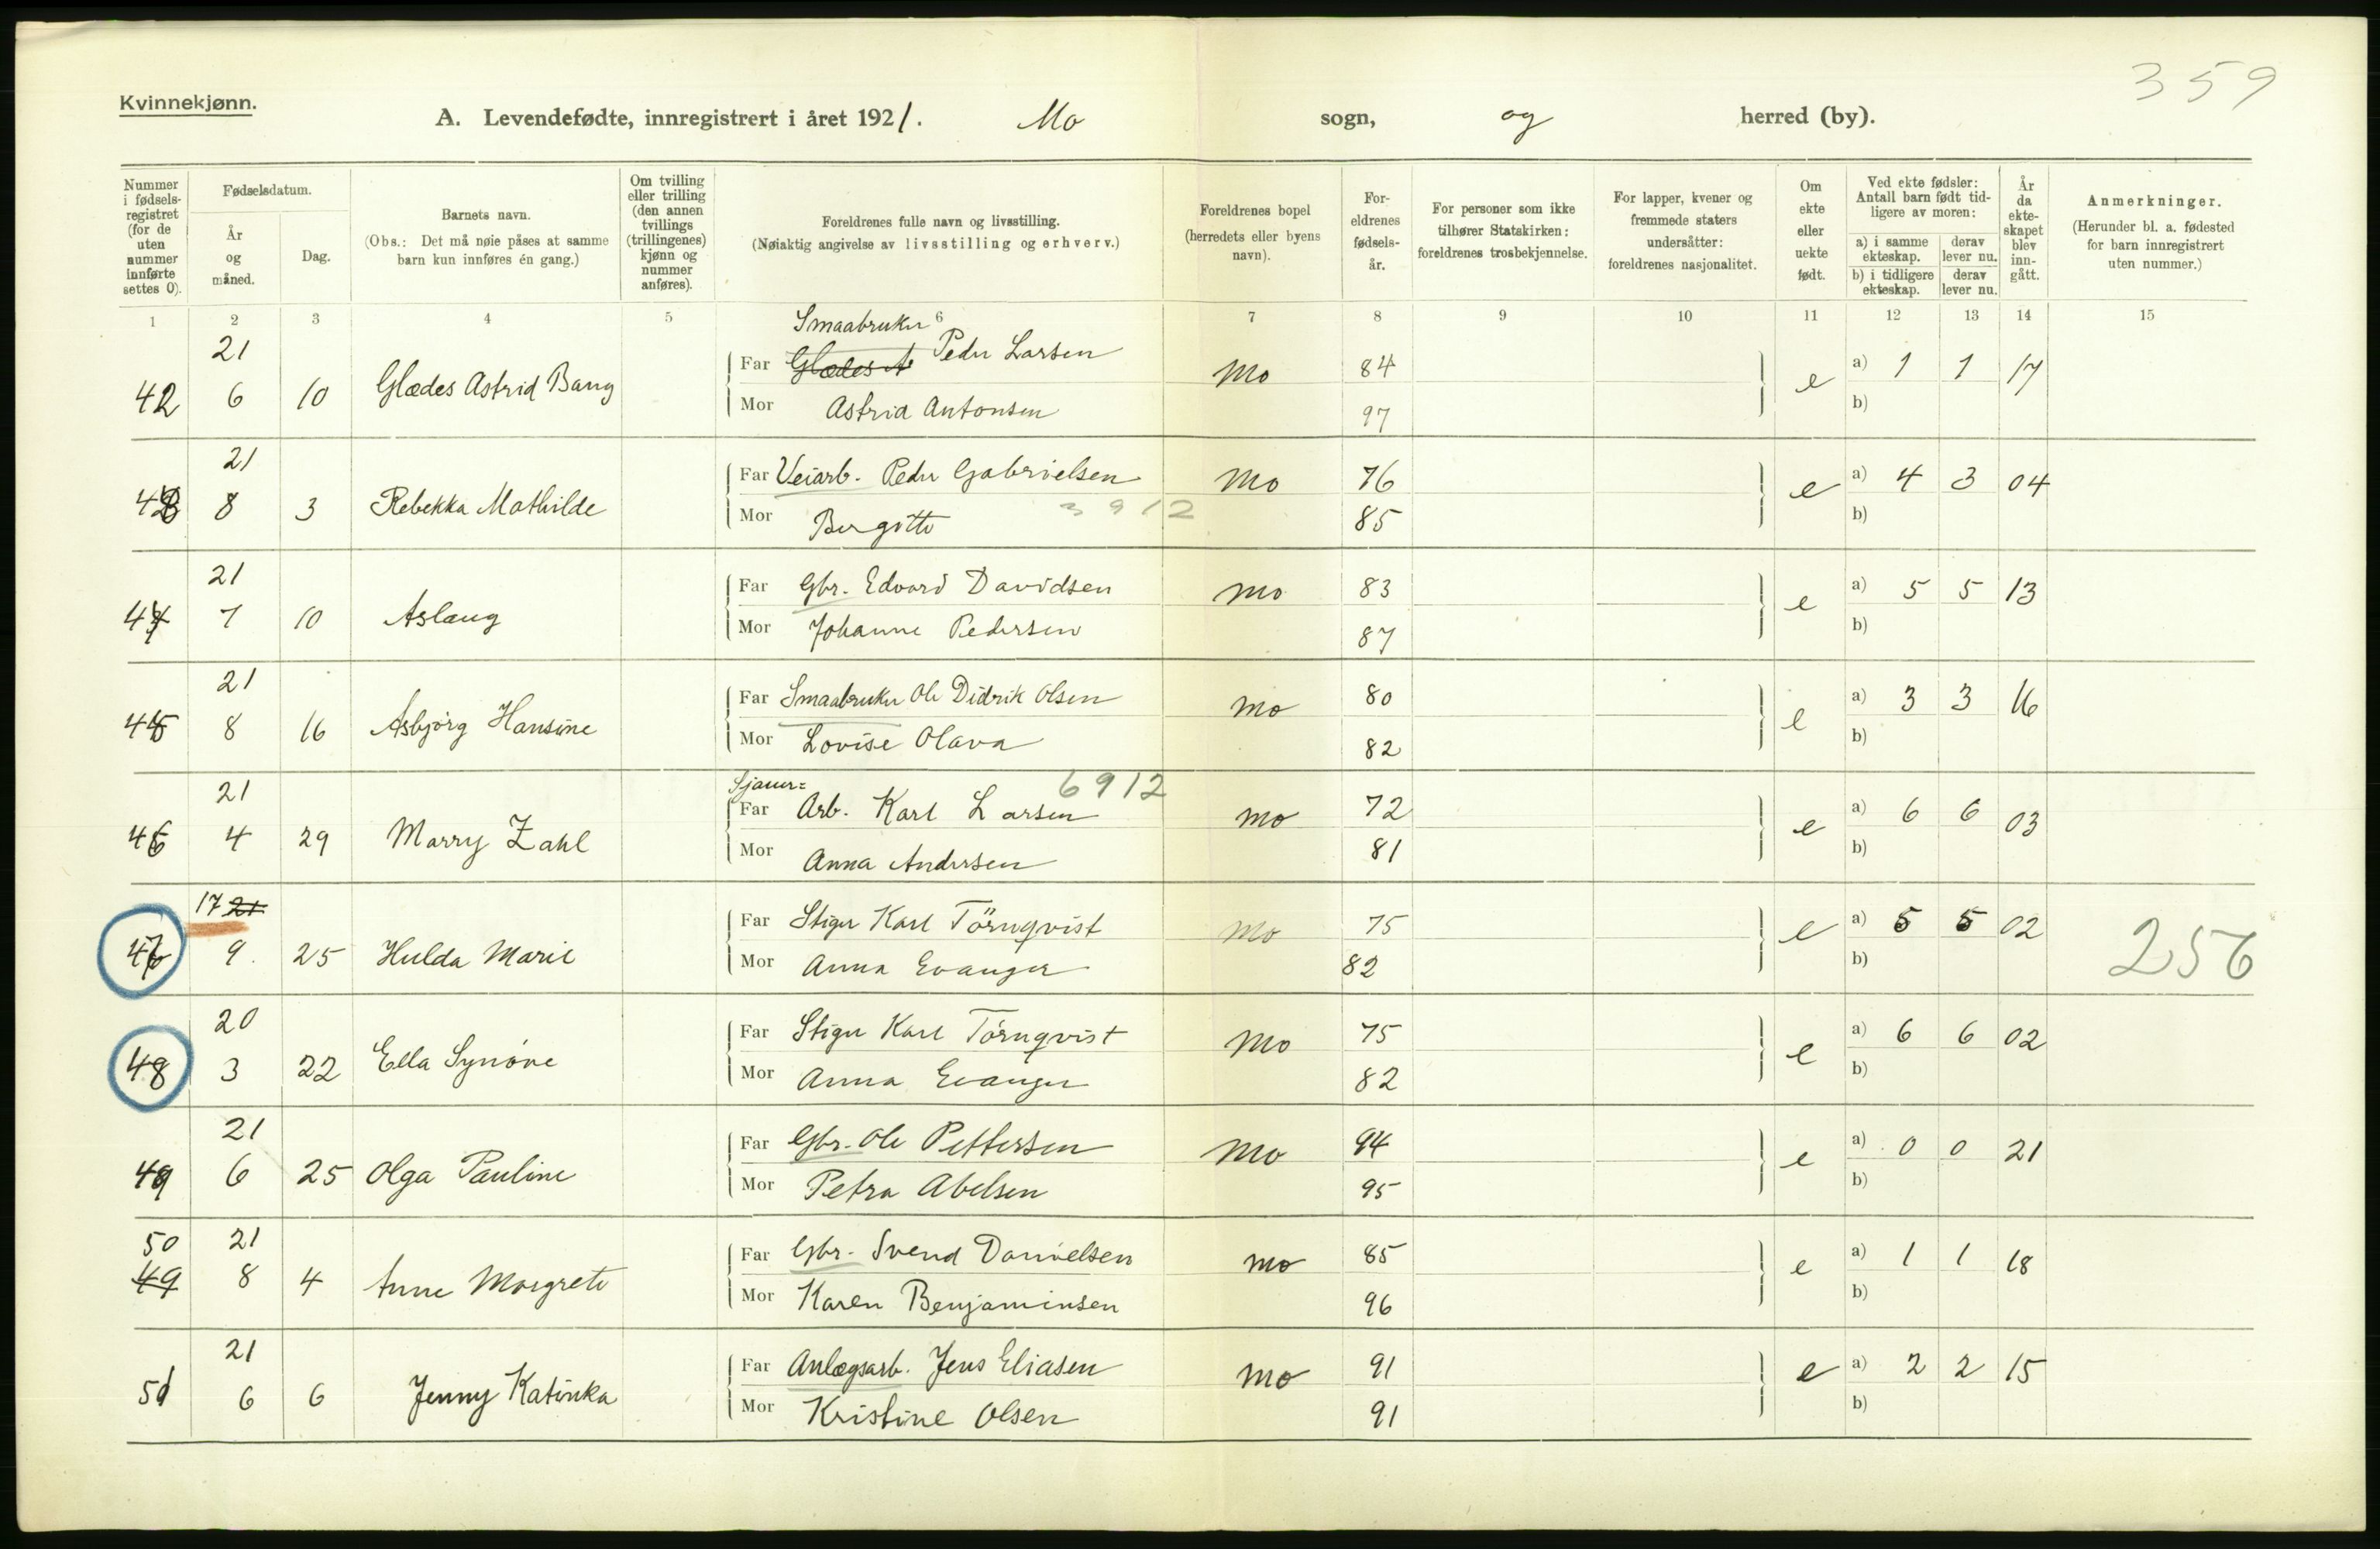 359
Kvinnekjønn.
A. Levendefødte, innregistrert i året 1921. Mo sogn, og herred (by).
Nummer i fødsels-registret (for de uten nummer innførte settes 0).
Fødselsdatum.
År og måned.
Dag.
Barnets navn.
(Obs.: Det må nøie påses at samme barn kun innføres én gang.)
Om tvilling eller trilling (den annen tvillings (trillingenes) kjønn og nummer anføres).
Foreldrenes fulle navn og livsstilling.
(Nøiaktig angivelse av livsstilling og erhverv.)
Foreldrenes bopel (herredets eller byens navn).
For-eldrenes fødsels-år.
For personer som ikke tilhører Statskirken: foreldrenes trosbekjennelse.
For lapper, kvener og fremmede staters undersåtter: foreldrenes nasjonalitet.
Om ekte eller uekte født.
Ved ekte fødsler: Antall barn født tid-ligere av moren:
a) i samme ekteskap.
derav lever nu.
b) i tidligere ekteskap.
derav lever nu.
År da ekte-skapet blev inn-gått.
Anmerkninger.
(Herunder bl. a. fødested for barn innregistrert uten nummer.)
1 2 3 4 5 6 7 8 9 10 11 12 13 14 15
Smaabruker
42 21 6 10 Glædes Astrid Bang Far Glædes A Peder Larsen Mo 84 e a) 1 1 17
Mor Astrid Antonsen 97 b)
43 21 8 3 Rebekka Mathilde Far Veiarb. Peder Gabrielsen Mo 76 e a) 4 3 04
Mor Bergitte 3912 85 b)
44 21 7 10 Aslaug Far Gbr. Edvard Davidsen Mo 83 e a) 5 5 13
Mor Johanne Pedersen 87 b)
45 21 8 16 Asbjørg Hansine Far Smaabruker Ole Didrik Olsen Mo 80 e a) 3 3 16
Mor Lovise Olava 82 b)
Sjauer= 6912
46 21 4 29 Marry Zahl Far Arb. Karl Larsen Mo 72 e a) 6 6 03
Mor Anna Andersen 81 b)
47 17 21 9. 25 Hulda Marie Far Stiger Karl Törnqvist Mo 75 e a) 5 5 02 256
Mor Anna Evanger 82 b)
48 20 3 22 Ella Synöve Far Stiger Karl Törnqvist Mo 75 e a) 6 6 02
Mor Anna Evanger 82 b)
49 21 6 25 Olga Pauline Far Gbr. Ole Pettersen Mo 94 e a) 0 0 21
Mor Petra Abelsen 95 b)
50 49 21 8 4 Anne Margrete Far Gbr. Svend Danielsen Mo 85 e a) 1 1 18
Mor Karen Benjaminsen 96 b)
51 21 6 6 Jenny Katinka Far Anlægsarb. Jens Eliasen Mo 91 e a) 2 2 15
Mor Kristine Olsen 91 b)